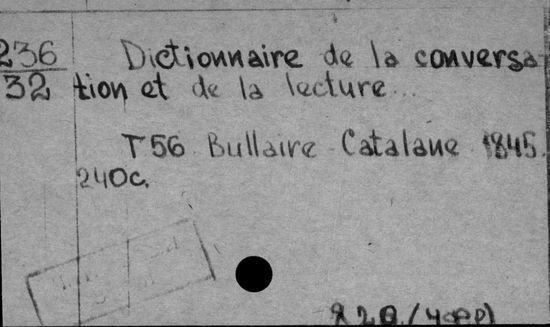 236 Dictionnaire de la conversa-
32 tion et de la lecture...
T 56 Bullaire - Catalane 1845.
240c.